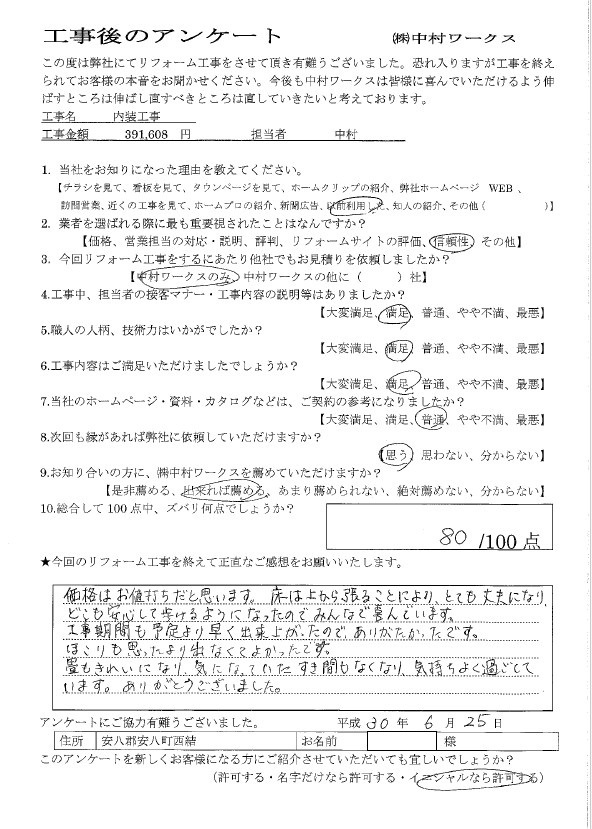 工事後のアンケート　㈱中村ワークス
この度は弊社にてリフォーム工事をさせて頂き有難うございました。恐れ入りますが工事を終え
られてお客様の本音をお聞かせください。今後も中村ワークスは皆様に喜んでいただけるよう伸
ばすところは伸ばし直すべきところは直していきたいと考えております。
工事名　内装工事
工事金額　391,608　円　担当者　中村
1. 当社をお知りになった理由を教えてください。
【チラシを見て、看板を見て、タウンページを見て、ホームクリップの紹介、弊社ホームページ　WEB 、
訪問営業、近くの工事を見て、ホームプロの紹介、新聞広告、以前利用した、知人の紹介、その他（　　　）】
2. 業者を選ばれる際に最も重要視されたことはなんですか？
【価格、営業担当の対応・説明、評判、リフォームサイトの評価、信頼性、その他】
3. 今回リフォーム工事をするにあたり他社でもお見積りを依頼しましたか？
【中村ワークスのみ、中村ワークスの他に（　　　）社】
4.工事中、担当者の接客マナー・工事内容の説明等はありましたか？
【大変満足、満足、普通、やや不満、最悪】
5.職人の人柄、技術力はいかがでしたか？
【大変満足、満足、普通、やや不満、最悪】
6.工事内容はご満足いただけましたでしょうか？
【大変満足、満足、普通、やや不満、最悪】
7.当社のホームページ・資料・カタログなどは、ご契約の参考になりましたか？
【大変満足、満足、普通、やや不満、最悪】
8.次回も縁があれば弊社に依頼していただけますか？
【思う、思わない、分からない】
9.お知り合いの方に、㈱中村ワークスを薦めていただけますか？
【是非薦める、出来れば薦める、あまり薦められない、絶対薦めない、分からない】
10.総合して 100 点中、ズバリ何点でしょうか？
80 /100 点
★今回のリフォーム工事を終えて正直なご感想をお願いいたします。
価格はお値打ちだと思います。床は上から張ることにより、とても丈夫になり
どこも安心して歩けるようになったのでみんなで喜んでいます。
工事期間も予定より早く出来上がったので、ありがたかったです。
ほこりも思ったより出なくてよかったです。
畳もきれいになり、気になっていたすき間もなくなり、気持ちよく過ごして
います。ありがとうございました。
アンケートにご協力有難うございました。　平成 30 年 6 月 25 日
住所　安八郡安八町西結　お名前　様
このアンケートを新しくお客様になる方にご紹介させていただいても宜しいでしょうか？
（許可する・名字だけなら許可する・イニシャルなら許可する）